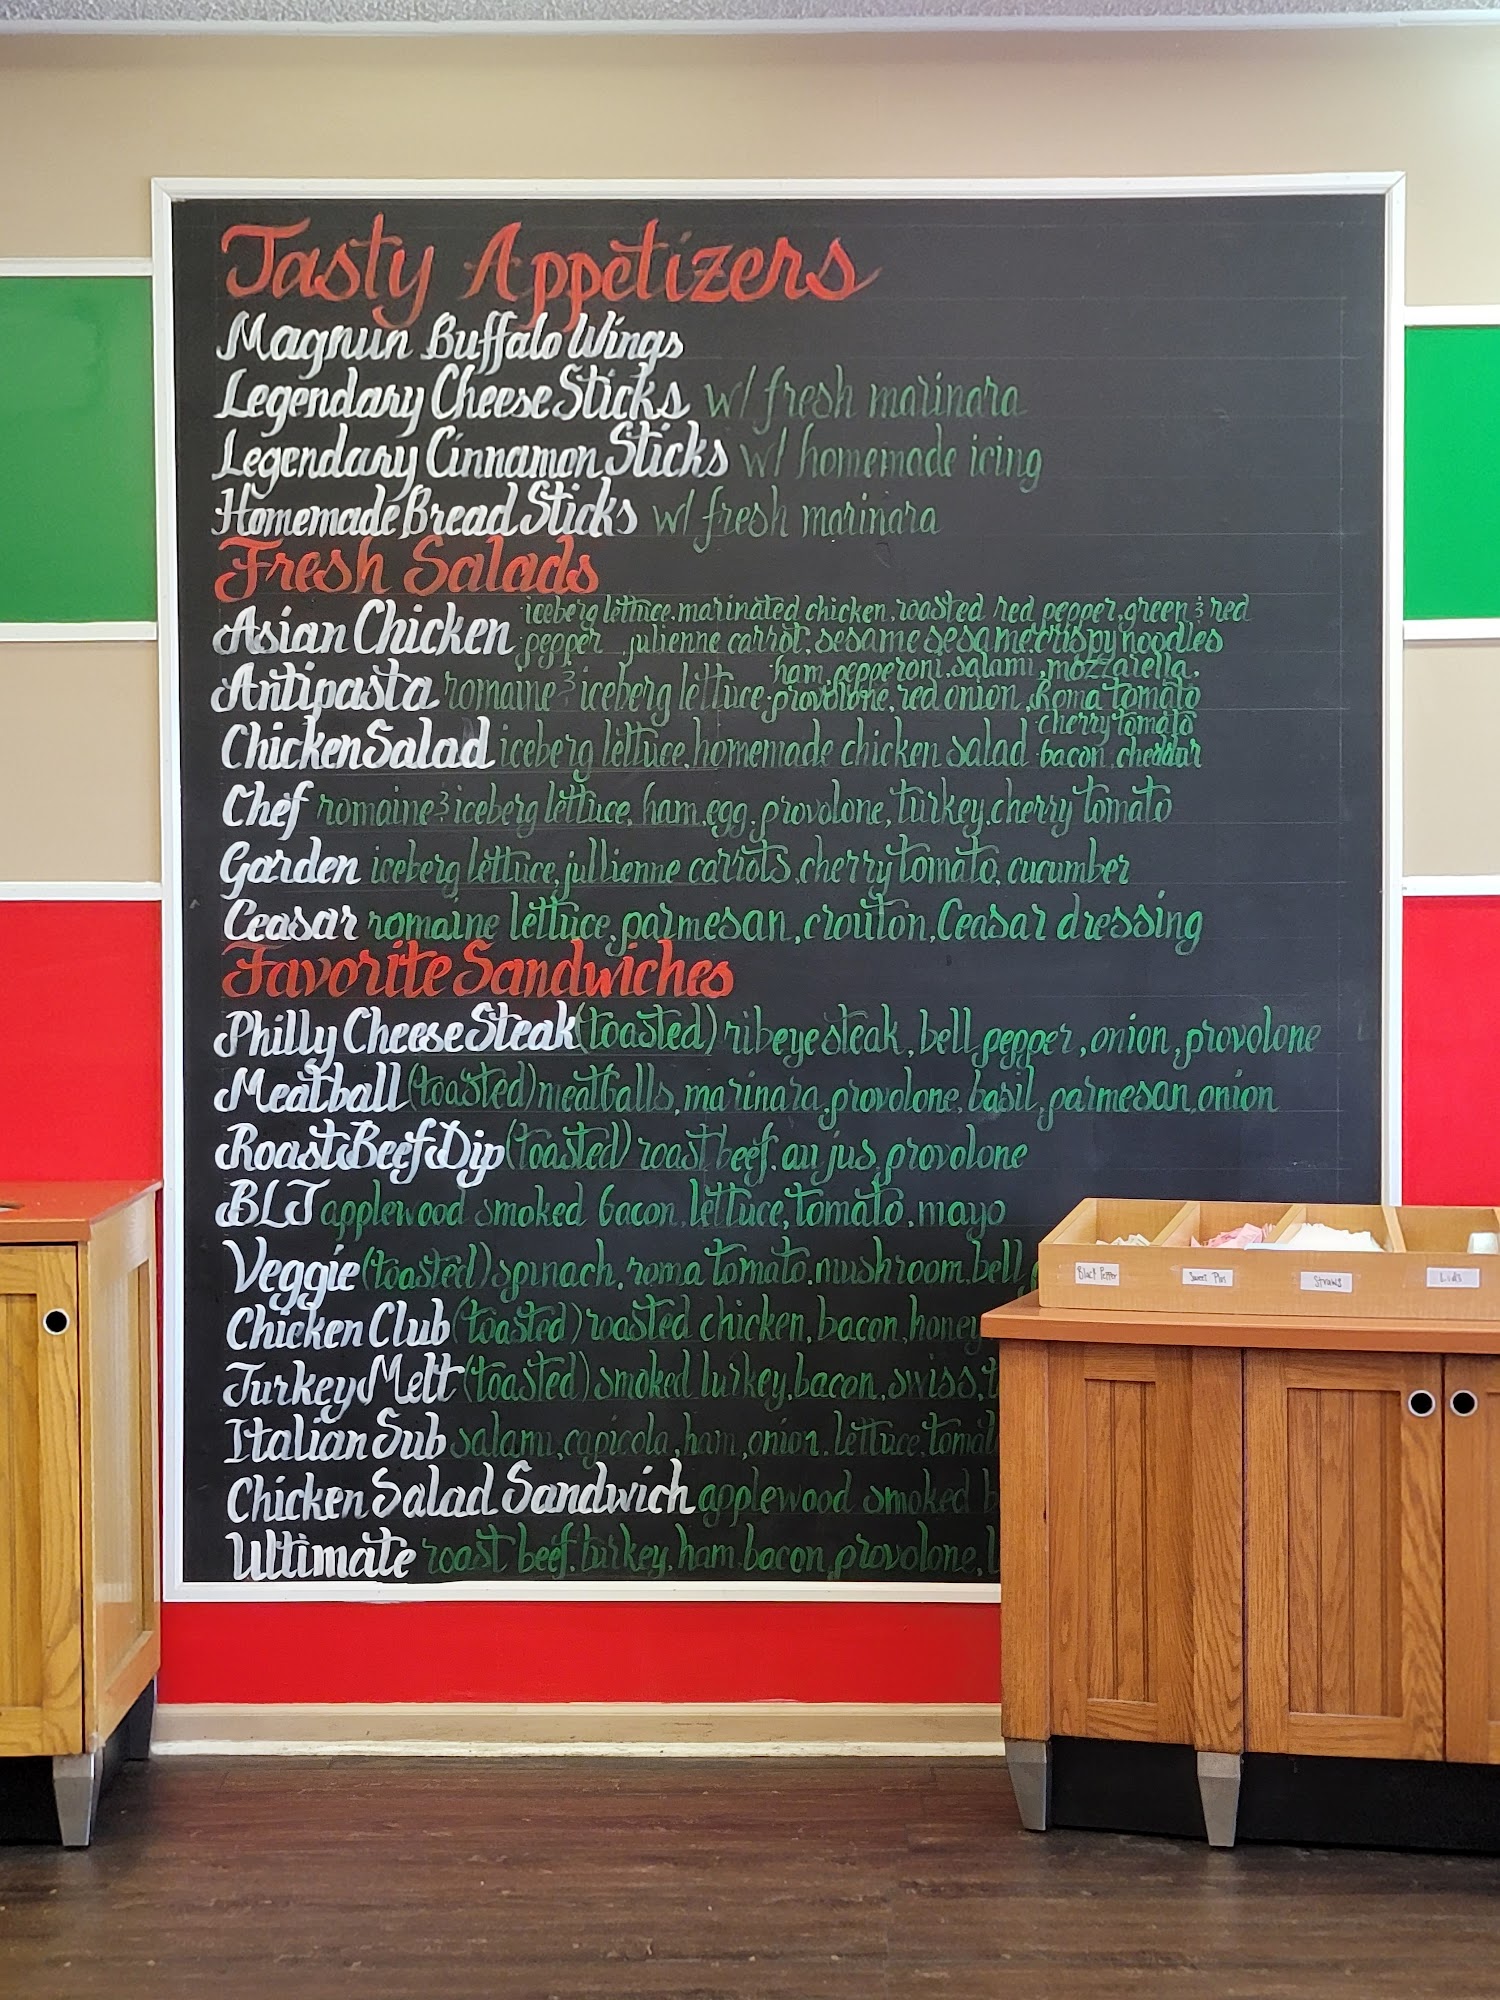 Tasty Appetizers
Magnun Buffalo Wings
Legendary Cheese Sticks w/ fresh marinara
Legendary Cinnamon Sticks w/ homemade icing
Homemade Bread Sticks w/ fresh marinara
Fresh Salads
Asian Chicken iceberg lettuce, marinated chicken, roasted red pepper, green & red
pepper, julienne carrot, sesame sesame crispy noodles
Antipasta romaine & iceberg lettuce, ham, pepperoni, salami, mozzarella,
provolone, red onion, Roma tomato
Chicken Salad iceberg lettuce, homemade chicken salad cherry tomato
bacon, cheddar
Chef romaine & iceberg lettuce, ham, egg, provolone, turkey, cherry tomato
Garden iceberg lettuce, jullienne carrots, cherry tomato, cucumber
Ceasar romaine lettuce, parmesan, crouton, Ceasar dressing
Favorite Sandwiches
Philly Cheese Steak (toasted) ribeye steak, bell pepper, onion, provolone
Meatball (toasted) meatballs, marinara, provolone, basil, parmesan, onion
Roast Beef Dip (toasted) roast beef, au jus, provolone
BLT applewood smoked bacon, lettuce, tomato, mayo
Veggie (toasted) spinach, roma tomato, mushroom, bell
Chicken Club (toasted) roasted chicken, bacon, honey
Turkey Melt (toasted) smoked turkey, bacon, swiss,
Italian Sub salami, capicola, ham, onion, lettuce, tomat
Chicken Salad Sandwich applewood smoked b
Ultimate roast beef, turkey, ham, bacon, provolone,
Black Pepper
Straws
Lids